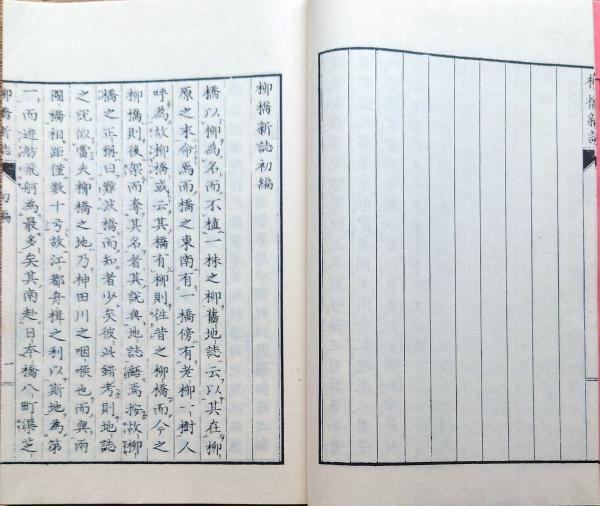 柳橋新誌
柳橋新誌初編
橋以柳為名而不植一株之柳舊地誌云以其在柳
原之末命焉而橋之東南有一橋傍有老柳一樹人
呼為故柳橋或云其橋有柳則往昔之柳橋而今之
柳橋則後架而奪其名者其說與地誌齟焉按故柳
橋之正稱曰難波橋而知者少矣彼此錯考則地誌
之說似當夫柳橋之地乃神田川之咽喉也而與兩
國橋相距僅數十弓故江都舟楫之利以斯地為第
一而遊舫飛舸為最多矣其南赴日本橋八町渠芝
柳橋新誌 初編 一